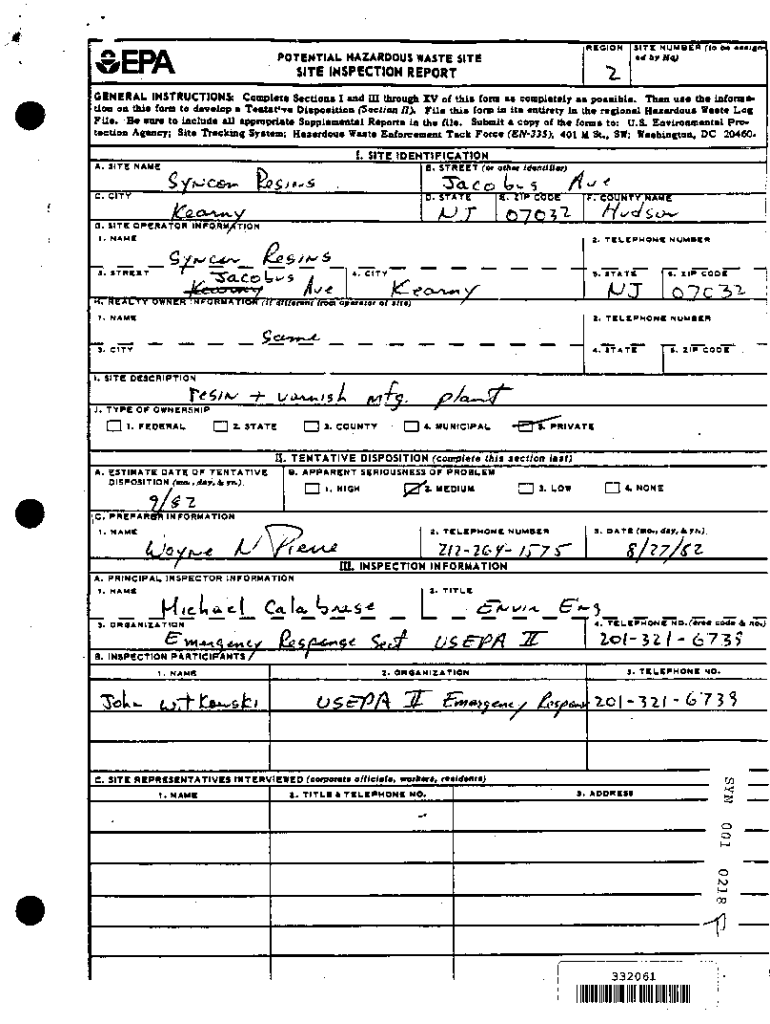 EPA
POTENTIAL HAZARDOUS WASTE SITE
SITE INSPECTION REPORT
REGION
2
SITE NUMBER (to be assigned by Hq)
GENERAL INSTRUCTIONS: Complete Sections I and III through XV of this form as completely as possible. Then use the informa-
tion on this form to develop a Tentative Disposition (Section II). File this form in its entirety in the regional Hazardous Waste Log
File. Be sure to include all appropriate Supplemental Reports in the file. Submit a copy of the forms to: U.S. Environmental Pro-
tection Agency; Site Tracking System; Hazardous Waste Enforcement Task Force (EN-335); 401 M St., SW; Washington, DC 20460.
I. SITE IDENTIFICATION
A. SITE NAME
Syncon Resins
B. STREET (or other identifier)
Jacobus Ave
C. CITY
Kearny
D. STATE
NJ
E. ZIP CODE
07032
F. COUNTY NAME
Hudson
G. SITE OPERATOR INFORMATION
1. NAME
Syncon Resins
2. TELEPHONE NUMBER
3. STREET
Jacobus Ave
4. CITY
Kearny
5. STATE
NJ
6. ZIP CODE
07032
H. REALTY OWNER INFORMATION (if different from operator of site)
1. NAME
Same
2. TELEPHONE NUMBER
3. CITY
4. STATE
5. ZIP CODE
I. SITE DESCRIPTION
resin + varnish mfg. plant
J. TYPE OF OWNERSHIP
1. FEDERAL 2. STATE 3. COUNTY 4. MUNICIPAL 5. PRIVATE
II. TENTATIVE DISPOSITION (complete this section last)
A. ESTIMATE DATE OF TENTATIVE
DISPOSITION (mo., day, & yr.)
9/82
B. APPARENT SERIOUSNESS OF PROBLEM
1. HIGH 2. MEDIUM 3. LOW 4. NONE
C. PREPARER INFORMATION
1. NAME
Wayne N Pierre
2. TELEPHONE NUMBER
212-264-1575
3. DATE (mo., day, & yr.)
8/27/82
III. INSPECTION INFORMATION
A. PRINCIPAL INSPECTOR INFORMATION
1. NAME
Michael Calabrese
2. TITLE
Envir Eng
3. ORGANIZATION
Emergency Response Sect USEPA II
4. TELEPHONE NO. (area code & no.)
201-321-6739
B. INSPECTION PARTICIPANTS
1. NAME 2. ORGANIZATION 3. TELEPHONE NO.
John Witkowski USEPA II Emergency Respons 201-321-6739
C. SITE REPRESENTATIVES INTERVIEWED (corporate officials, workers, residents)
1. NAME 2. TITLE & TELEPHONE NO. 3. ADDRESS
SYN 001 0218
332061